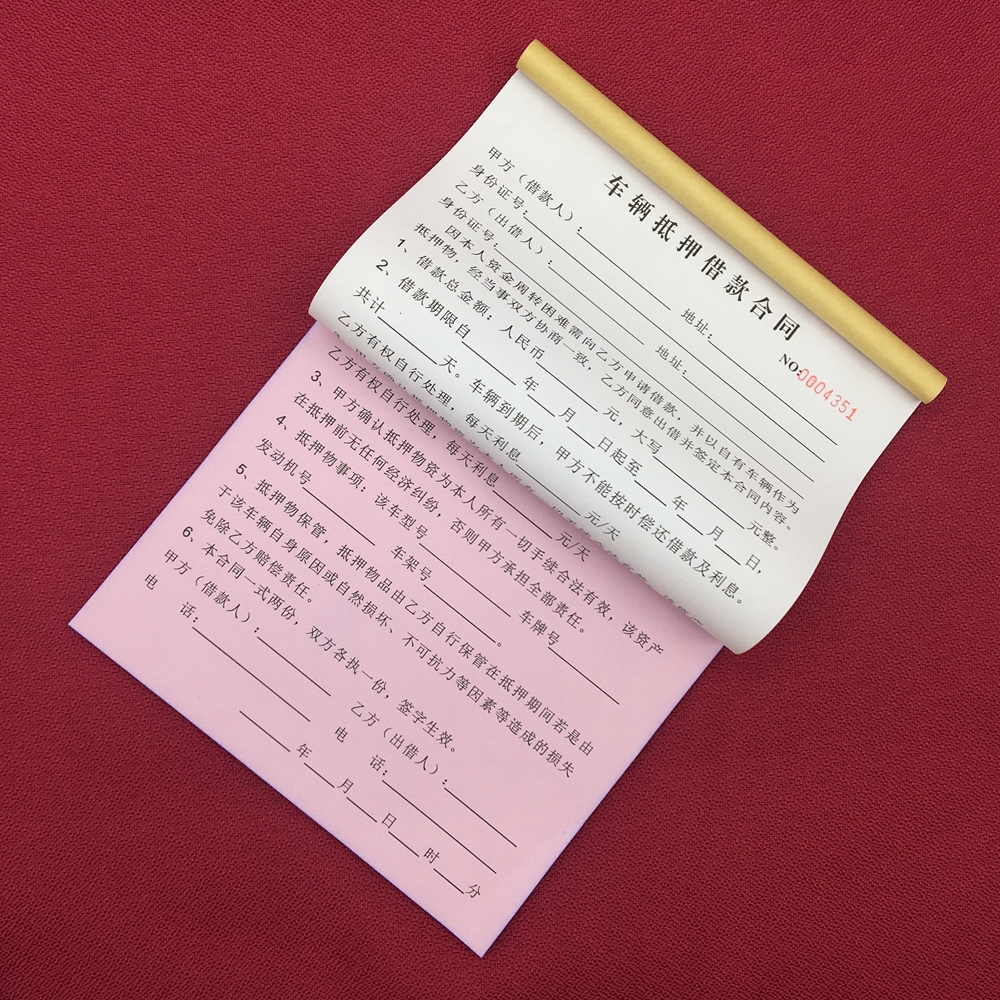 车辆抵押借款合同
NO:0004351
甲方（借款人）:________ 地址:________
身份证号:________
乙方（出借人）:________ 地址:________
身份证号:________
因本人资金周转困难需向乙方申请借款，并以自有车辆作为
抵押物，经当事双方协商一致，乙方同意出借并签定本合同内容。
1、借款总金额：人民币________元，大写________元整。
2、借款期限自____年____月____日起至____年____月____日，
共计____天。车辆到期后，甲方不能按时偿还借款及利息。
乙方有权自行处理，每天利息____元/天
乙方有权自行处理，每天利息____元/天
3、甲方确认抵押物资为本人所有一切手续合法有效，该资产
在抵押前无任何经济纠纷，否则甲方承担全部责任。
4、抵押物事项：该车型号________车牌号________
发动机号________车架号________。
5、抵押物保管，抵押物品由乙方自行保管在抵押期间若是由
于该车辆自身原因或自然损坏、不可抗力等因素等造成的损失
免除乙方赔偿责任。
6、本合同一式两份，双方各执一份，签字生效。
甲方（借款人）:________ 乙方（出借人）:________
电 话:________ 电 话:________
____年____月____日____时____分